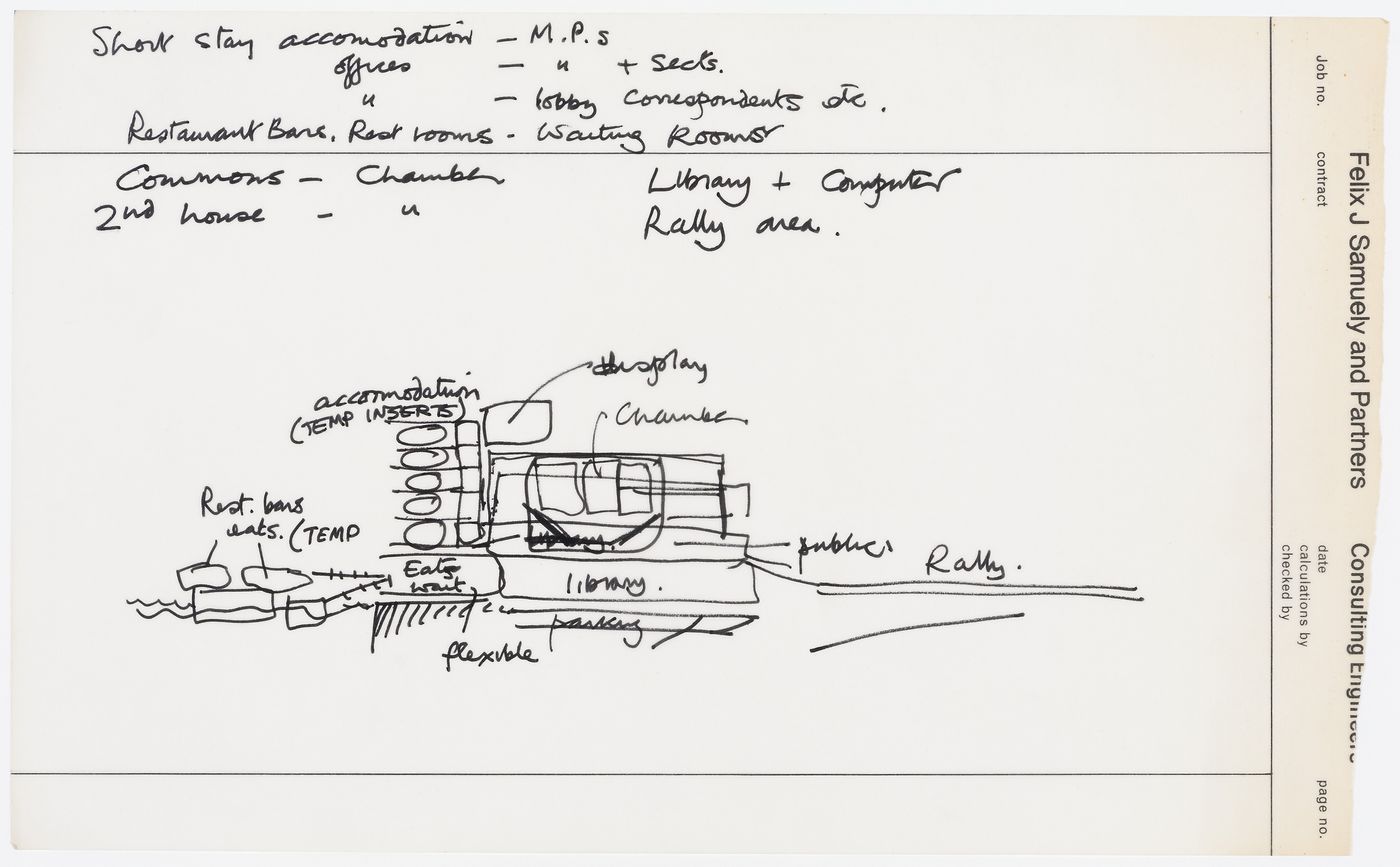 Short stay accomodation — M.P.s
offices — " + Sects.
" — lobby correspondents etc.
Restaurant Bars. Rest rooms - Waiting Rooms
Commons — Chamber
Library + Computer
2nd house - "
Rally area.
display
accomodation
(TEMP INSERTS)
Chamber
Rest. bars
eats. (TEMP
library.
public
Rally.
Eats
wait
library.
parking
flexible
Job no.
contract
date
calculations by
checked by
page no.
Felix J Samuely and Partners Consulting Engineers